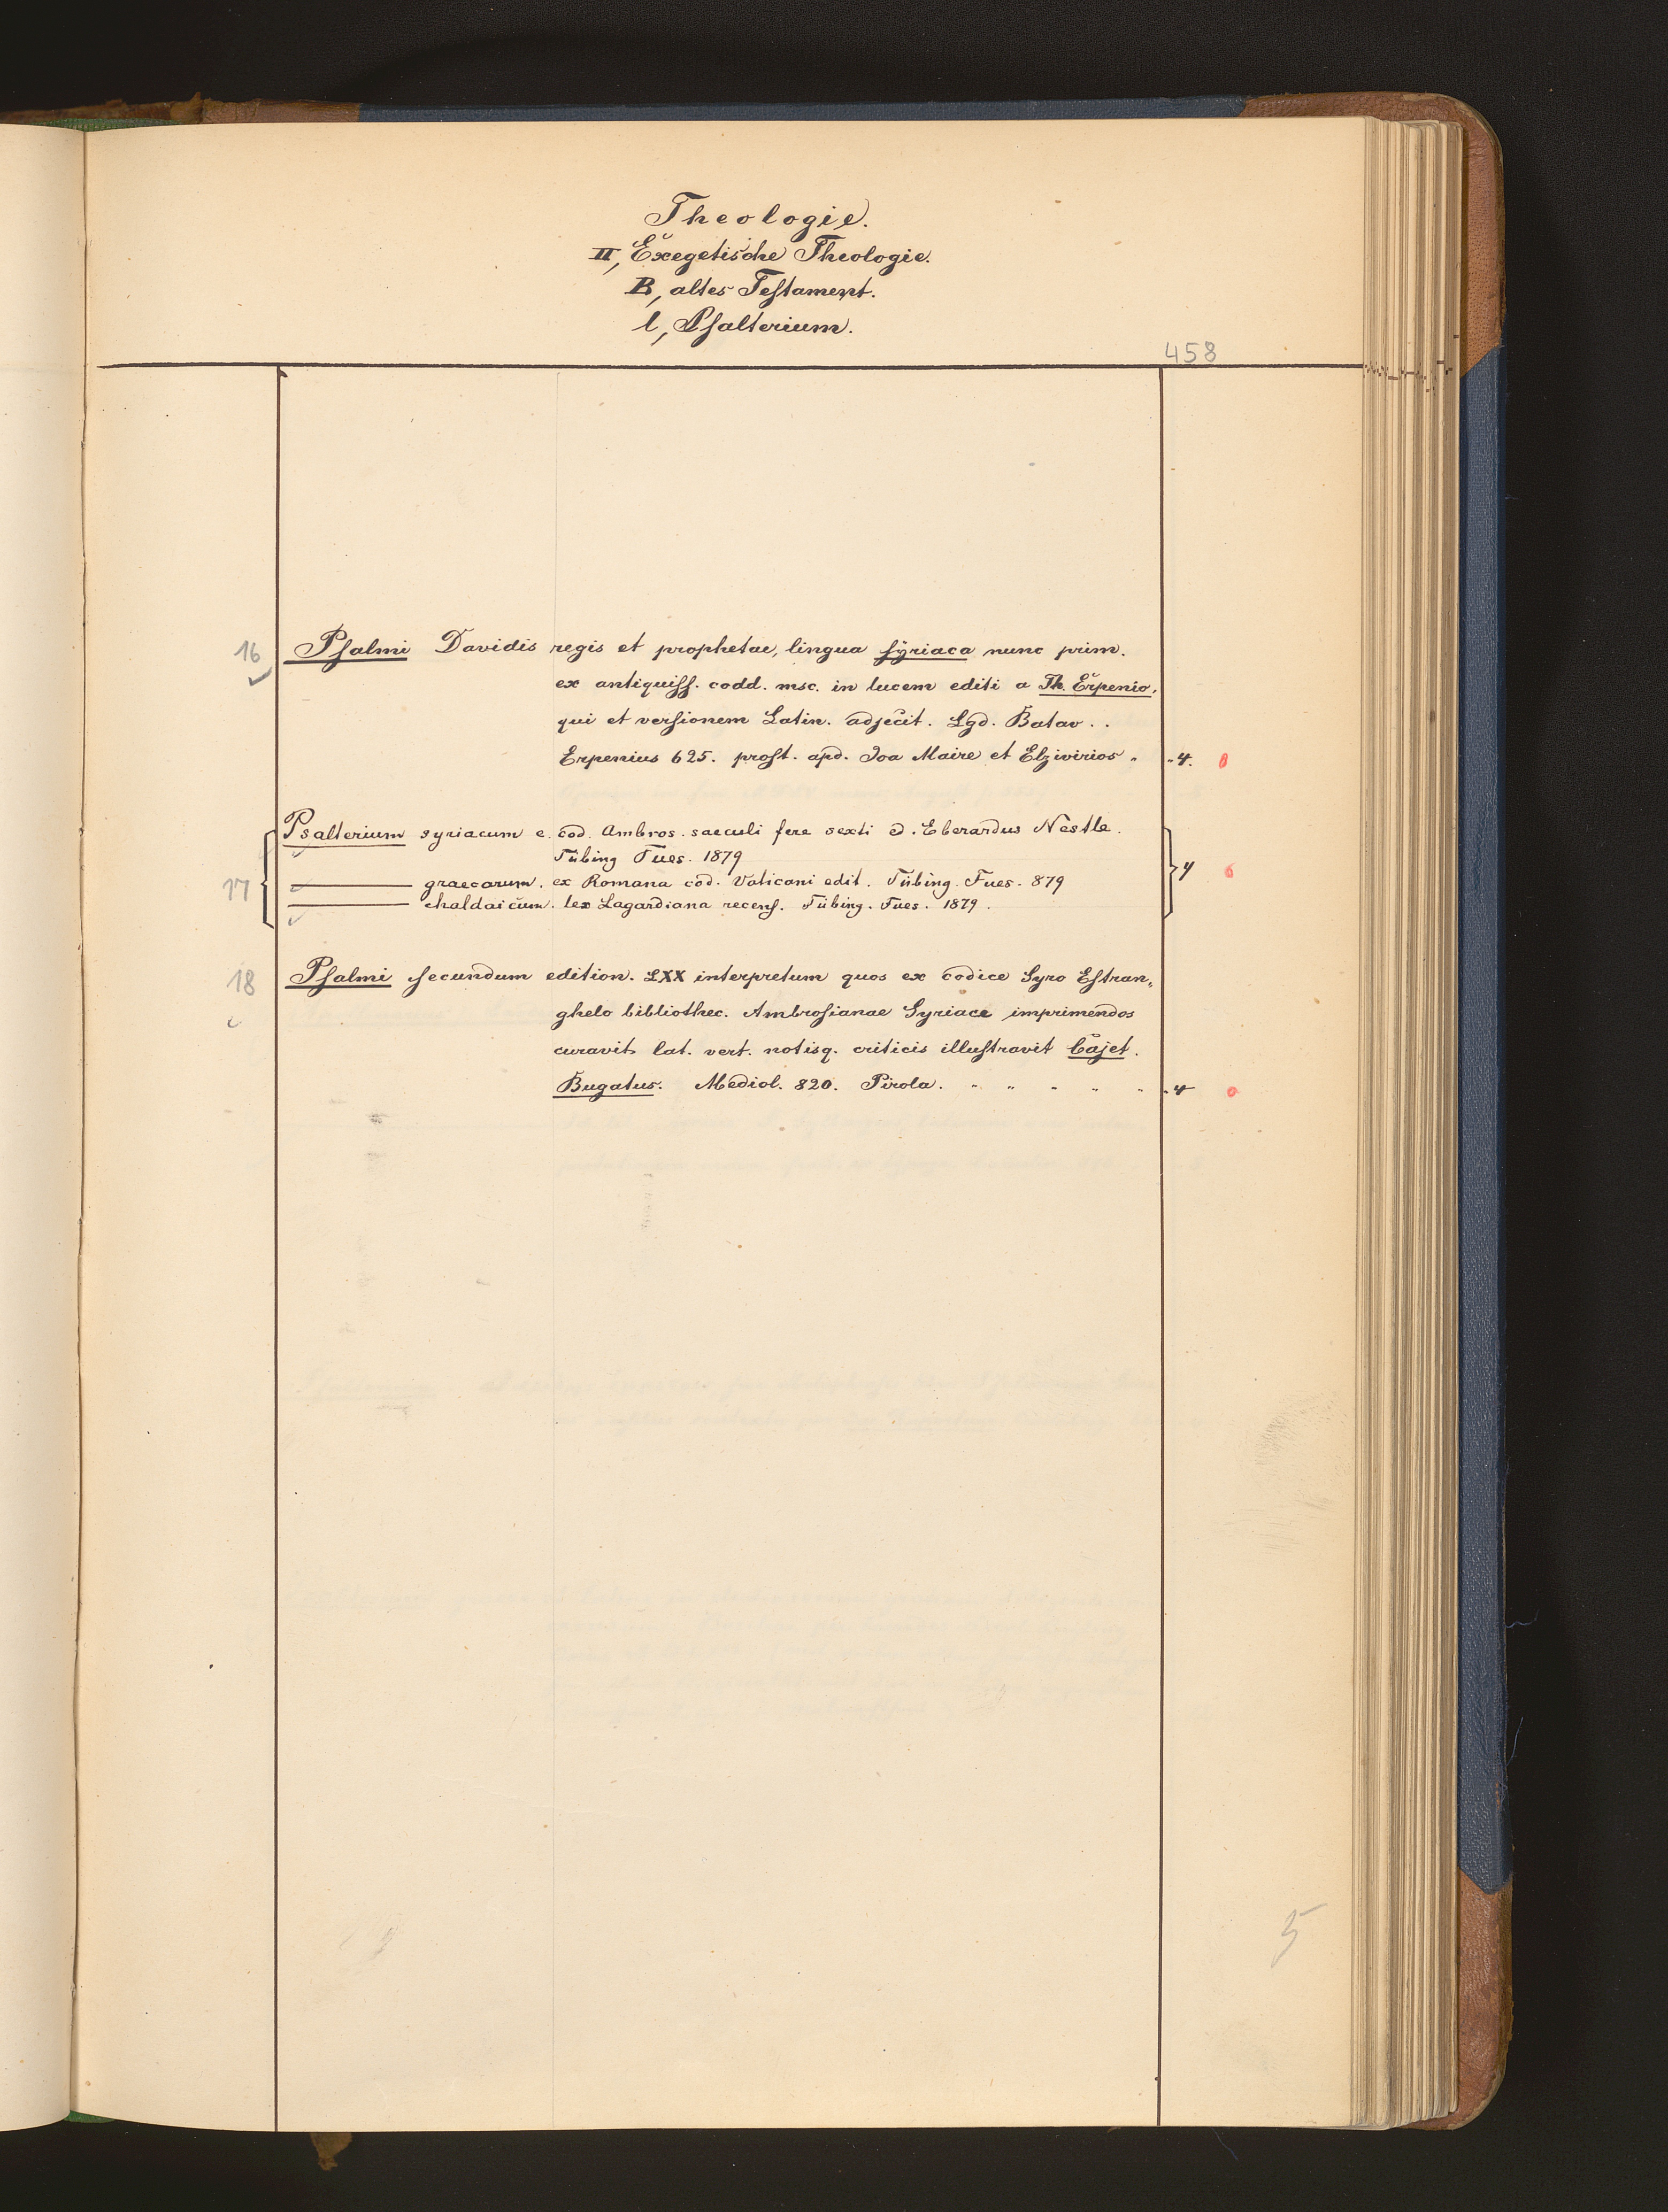 Theologie.
II, Exegetische Theologie.
B, altes Testament.
l, Psalterium.
458
16 Psalmi Davidis regis et prophetae, lingua syriaca nunc prim.
ex antiquiss. codd. msc. in lucem editi a Th. Erpenio,
qui et versionem Latin. adjecit. Lgd. Batav. .
Erpenius 625. prost. apd. Joa Maire et Elzivirios " " 4. 0
Psalterium syriacum e. cod. Ambros. saeculi fere sexti ed. Eberardus Nestle.
Tübing Fues. 1879
17 ——— graecarum. ex Romana cod. Vaticani edit. Tübing. Fues. 879 4
——— chaldaicum. lex Lagardiana recens. Tübing. Fues. 1879.
18 Psalmi secundum edition. LXX interpretum quos ex codice Syro Estran„
ghelo bibliothec. Ambrosianae Syriace imprimendos
curavit lat. vert. notisq. criticis illustravit Cajet.
Bugatus. Mediol. 820. Pirola. " " " " " " 4 0
5